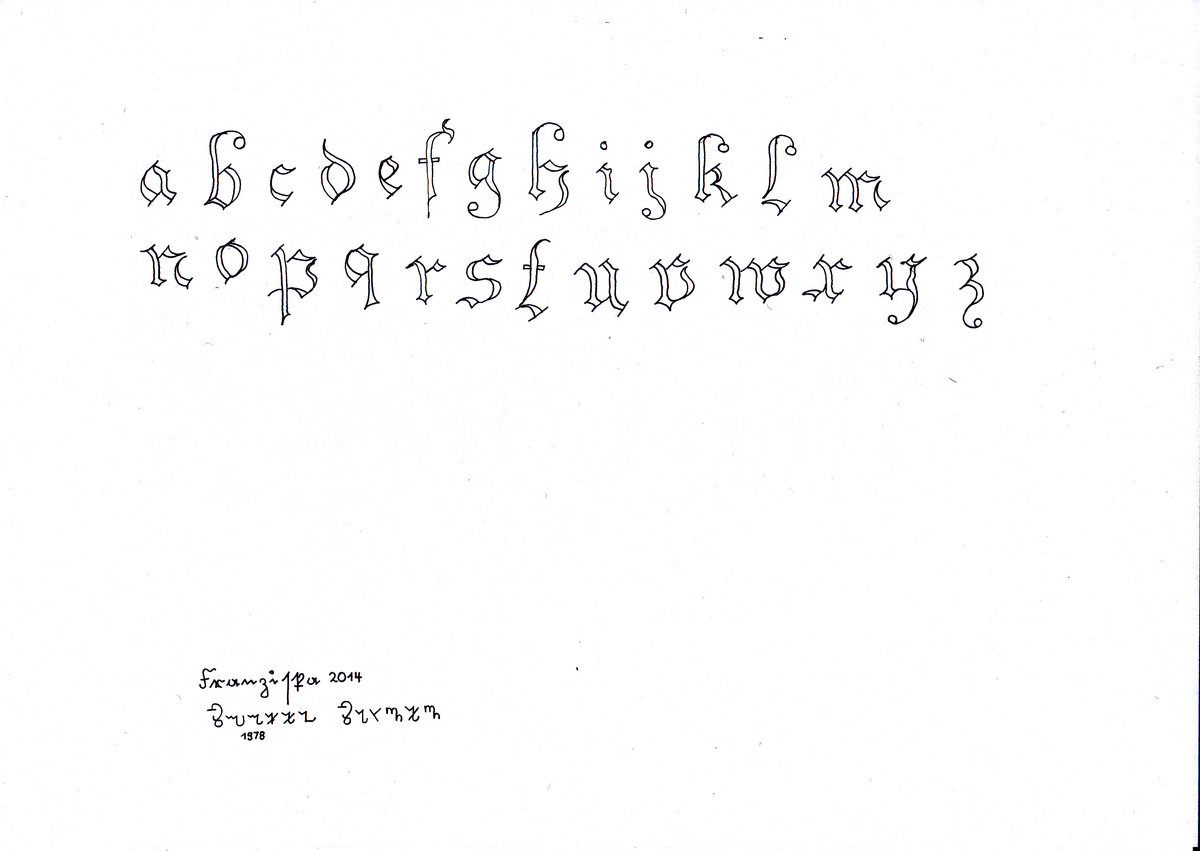 a b c d e f g h i j k l m
n o p q r s t u v w x y z
Franziſka 2014
1978